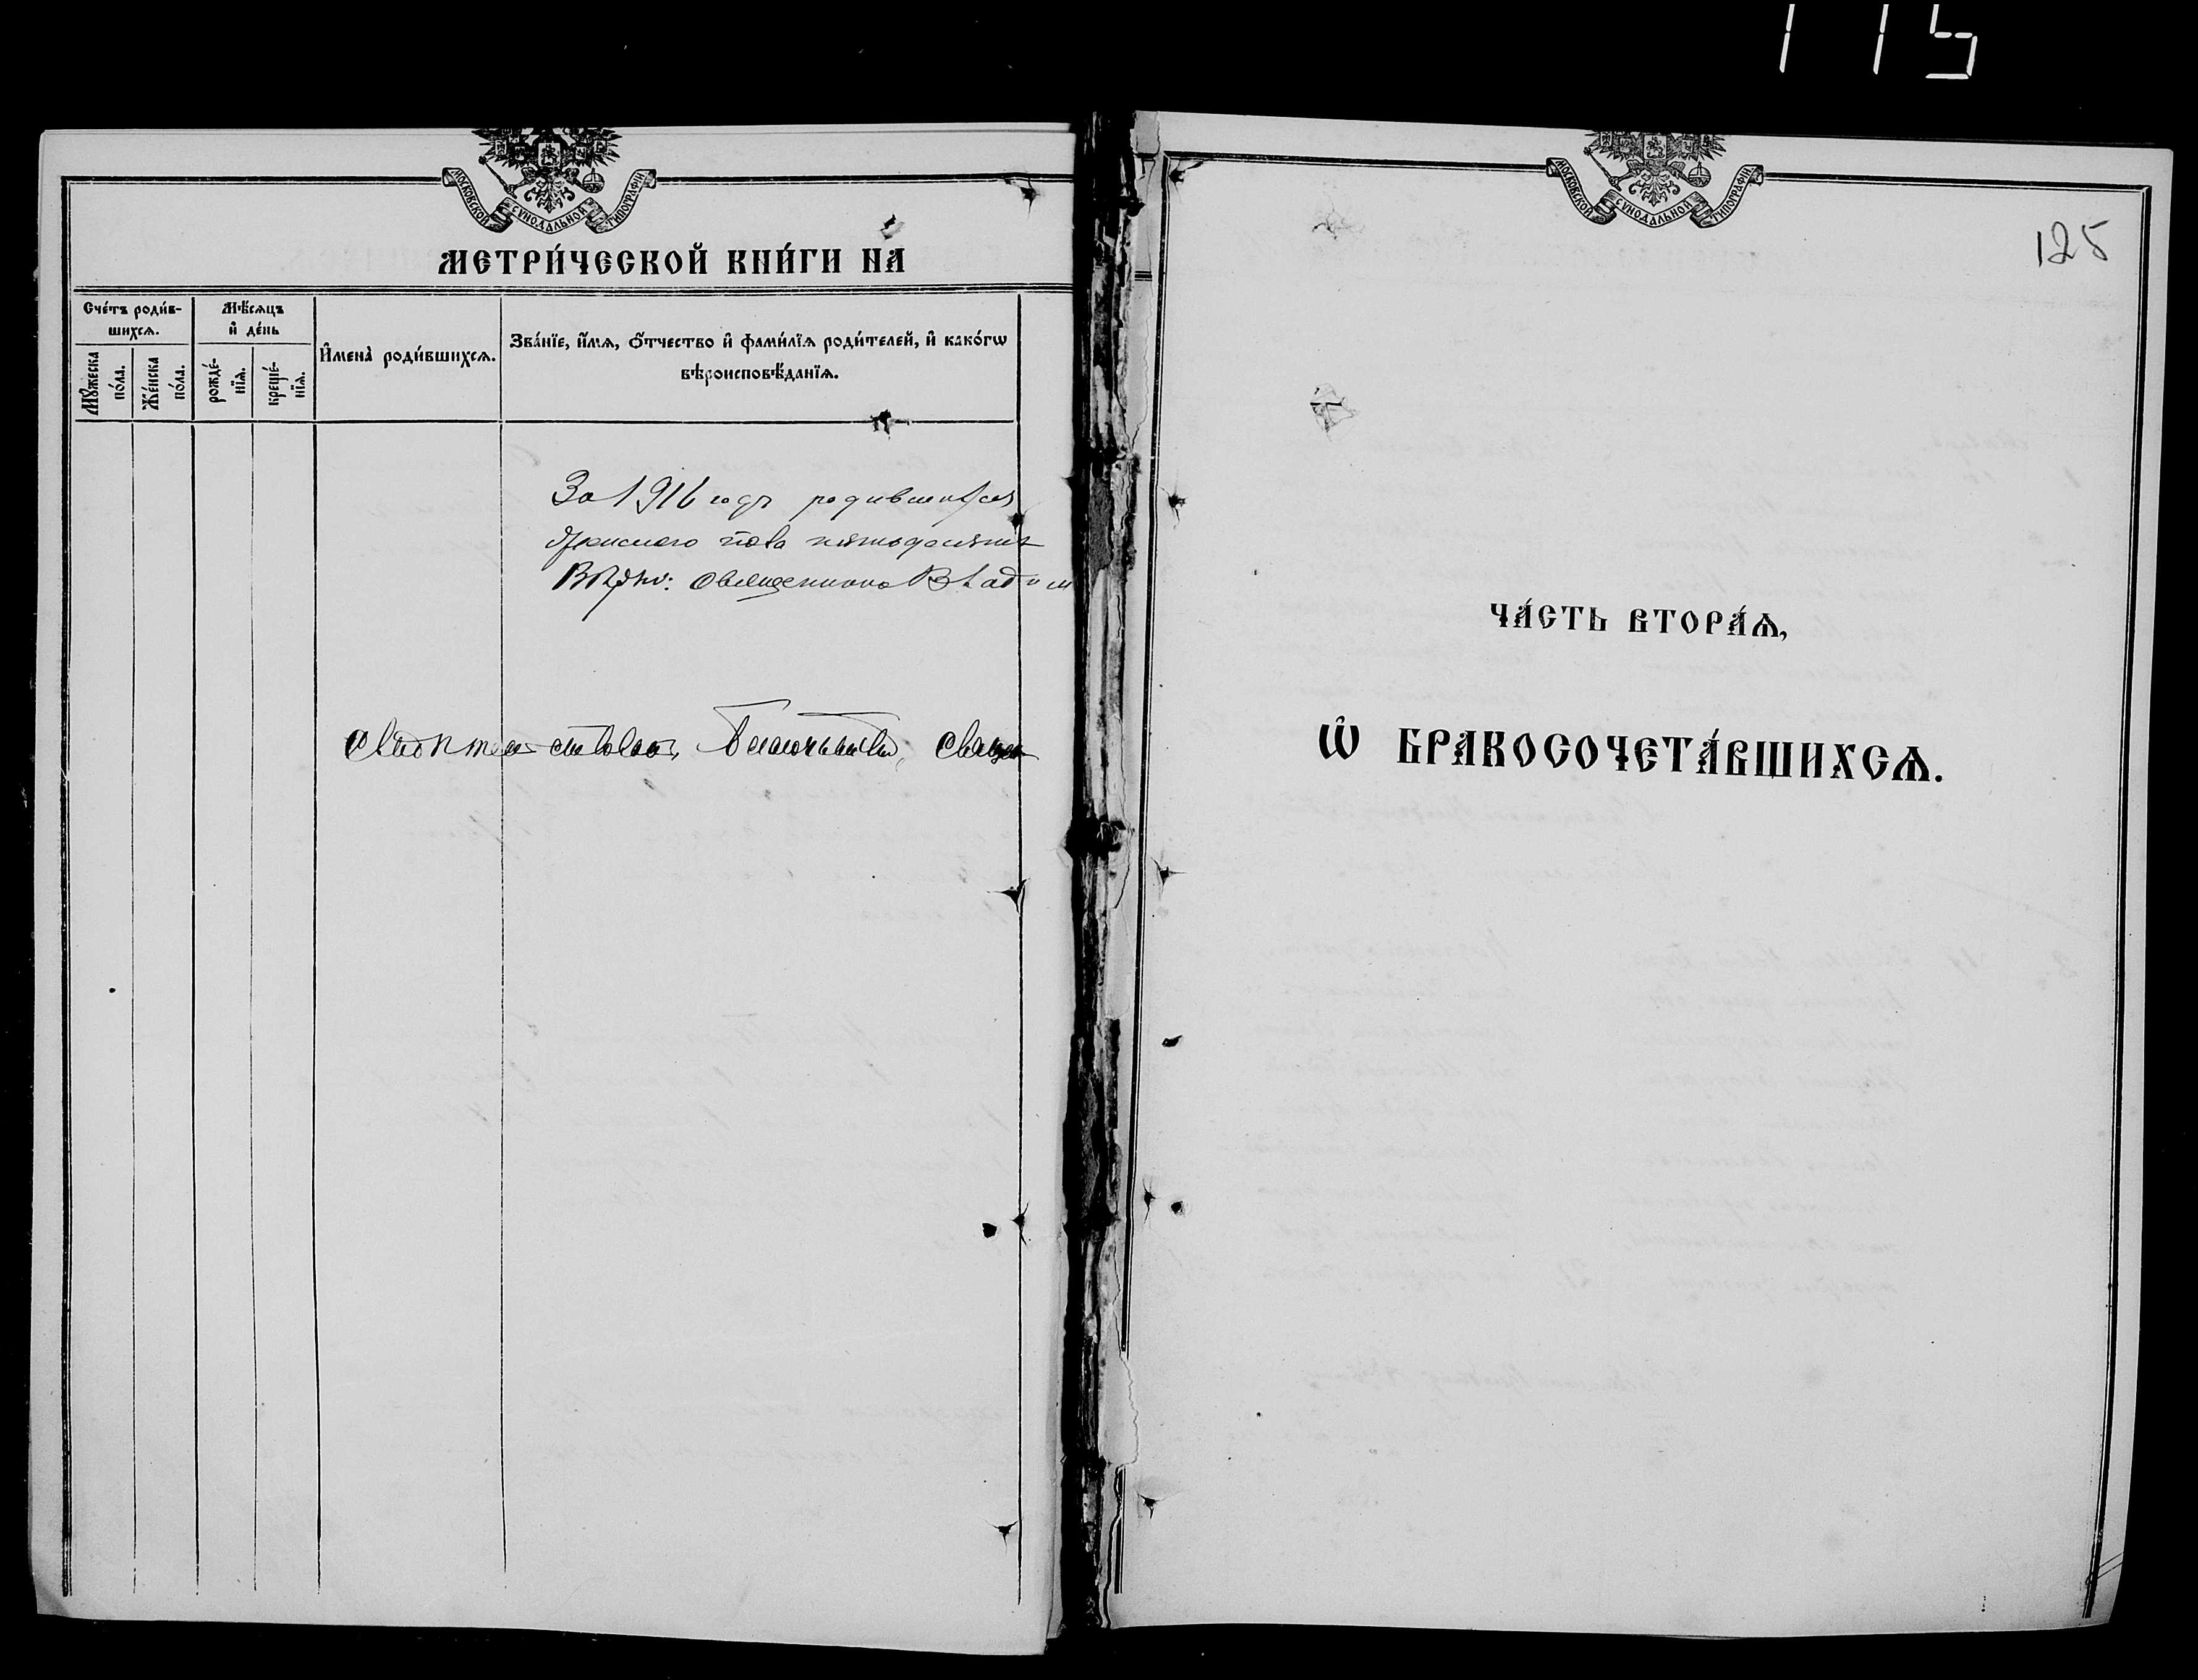 115
МОСКОВСКОЙ СѴНОДАЛЬНОЙ ТИПОГРАФІИ
МЕТРИ́ЧЕСКОЙ КНИ́ГИ НА
Сче́тъ роди́вшихсѧ.
Мꙋжеска по́ла.
Же́нска по́ла.
Мѣ́сѧцъ и҆ де́нь
рожде́нїѧ.
креще́нїѧ.
И҆мена̀ роди́вшихсѧ.
Зва́нїе, и҆́мѧ, ѻ҆́тчество и҆ фами́лїѧ роди́телей, и҆ како́гѡ
вѣроисповѣ́данїѧ.
За 1916 годъ родившихся
женскаго пола пятьдесятъ
Вѣрно: Священникъ Владим
МОСКОВСКОЙ СѴНОДАЛЬНОЙ ТИПОГРАФІИ
125
ЧА́СТЬ ВТОРА́Ѧ,
Ѡ҆ БРАКОСОЧЕТА́ВШИХСѦ.